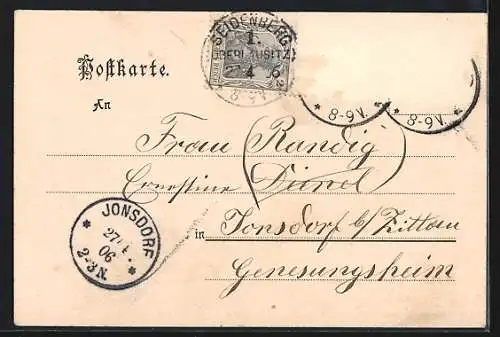 SEIDENBERG
1.
(OBERLAUSITZ)
27 4 06
8-9V.
* 8-9V. *
* 8-9V. *
Postkarte.
An
Frau (Randig)
Ernestine
in Jonsdorf b/Zittau
Genesungsheim
JONSDORF
27 4
06
* 2-3N. *